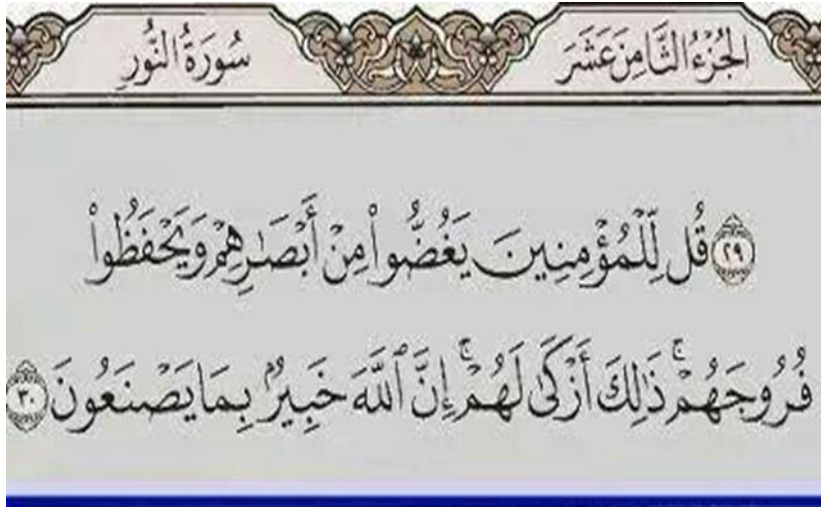 الجُزْءُ الثَّامِنَ عَشَرَ
سُورَةُ النُّورِ
٢٩ قُل لِّلْمُؤْمِنِينَ يَغُضُّوا۟ مِنْ أَبْصَـٰرِهِمْ وَيَحْفَظُوا۟
فُرُوجَهُمْ ۚ ذَٰلِكَ أَزْكَىٰ لَهُمْ ۚ إِنَّ ٱللَّهَ خَبِيرٌۢ بِمَا يَصْنَعُونَ ٣٠